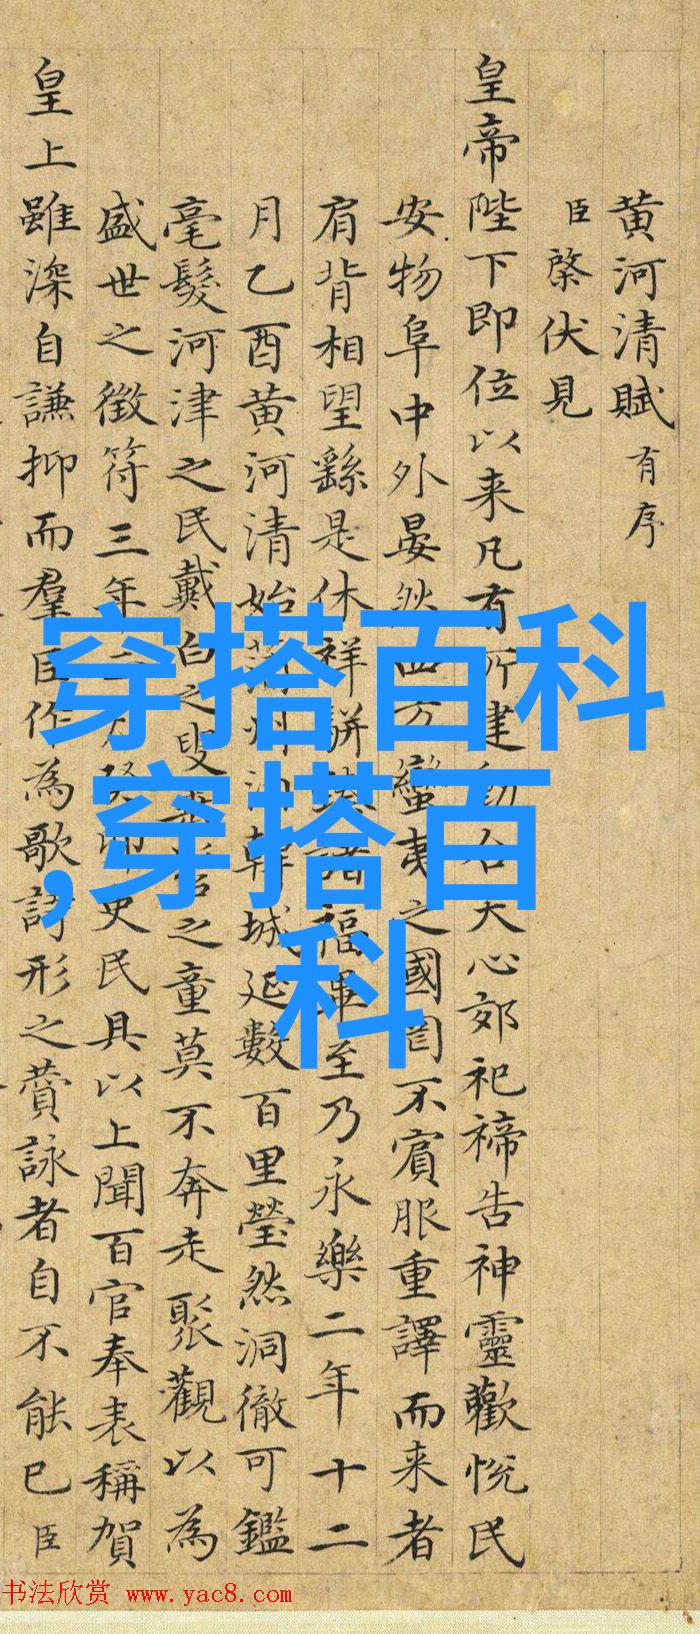 黄河清賦 有序
臣棨伏見
皇帝陛下即位以来凡有所建動合天心郊祀禘告神靈歡悅民
安物阜中外晏然四方蠻夷之國罔不賓服重譯而来者
肩背相望繇是休祥駢臻諸福畢至乃永樂二年十二
月乙酉黄河清始蒲州洎韓城延數百里瑩然洞徹可鑑
毫髮河津之民戴白之叟垂髫之童莫不奔走聚觀以為
盛世之徵符三年吏民具以上聞百官奉表稱賀
皇上雖深自謙抑而羣臣作為歌詩形之賛詠者自不能已臣
穿搭百科
,穿搭百
科
书法欣赏 www.yac8.com